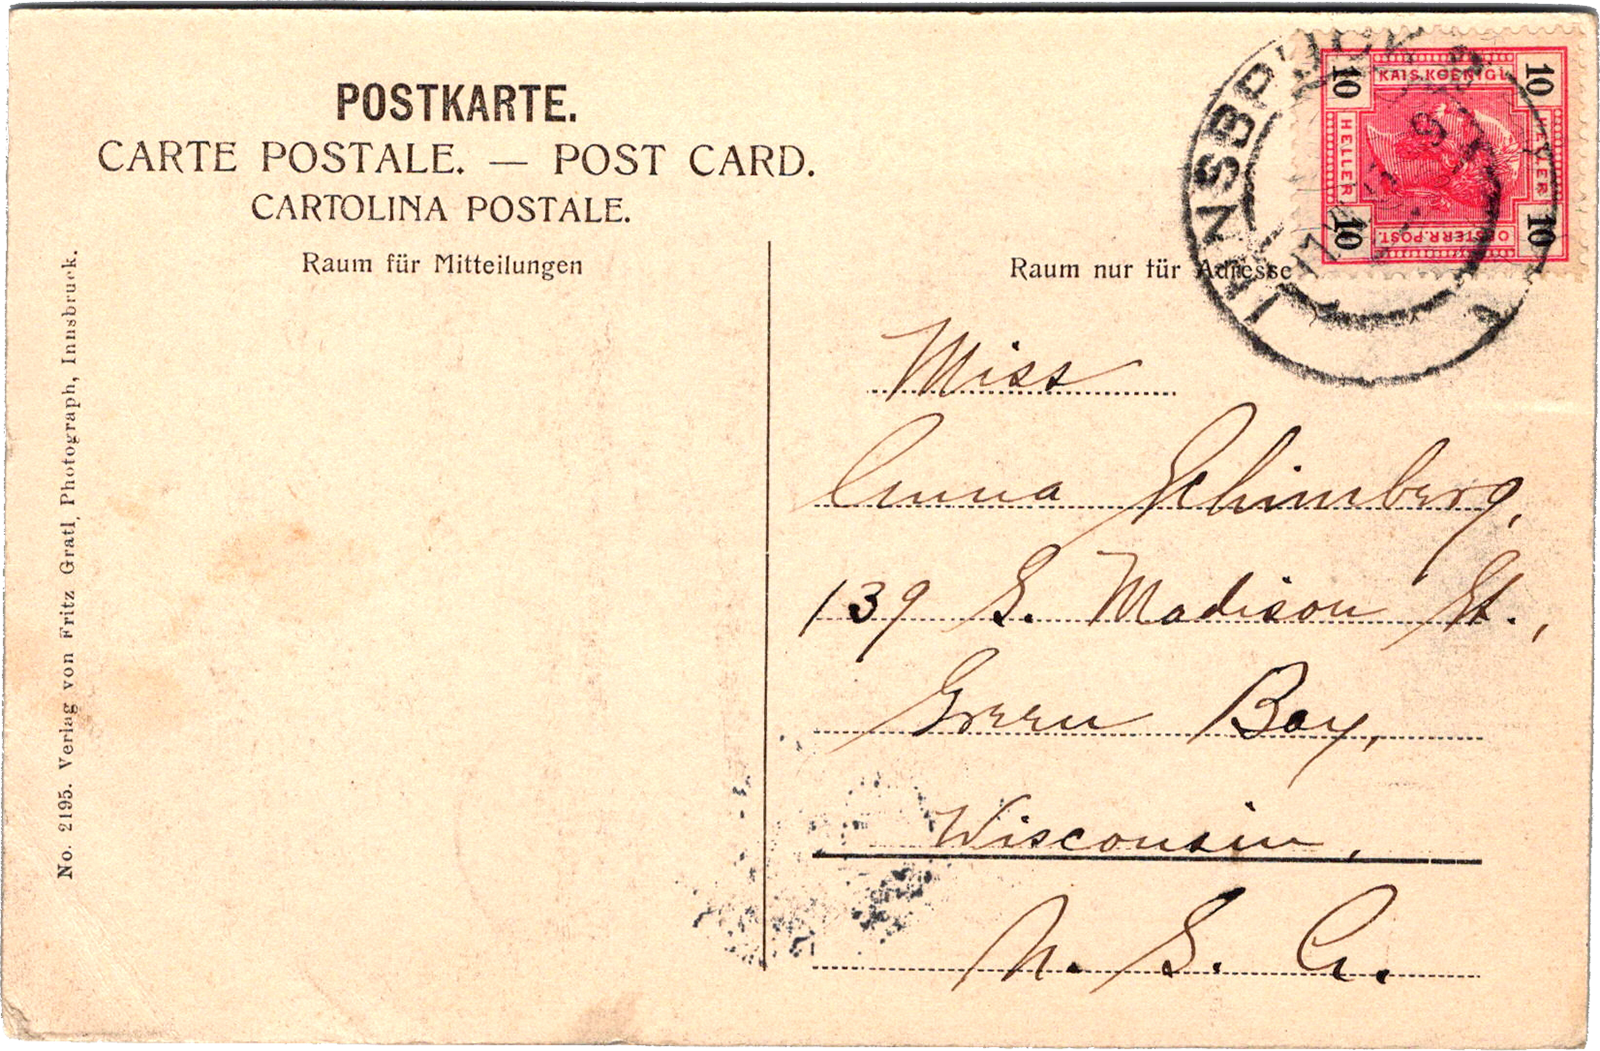 POSTKARTE.
CARTE POSTALE. — POST CARD.
CARTOLINA POSTALE.
Raum für Mitteilungen
Raum nur für Adresse
No. 2195. Verlag von Fritz Gratl, Photograph, Innsbruck.
INNSBRUCK
10 KAIS. KOENIGL. 10
HELLER HELLER
10 OESTERR. POST. 10
Miss
Emma Schimberg,
139 S. Madison St.,
Green Bay,
Wisconsin.
U. S. A.